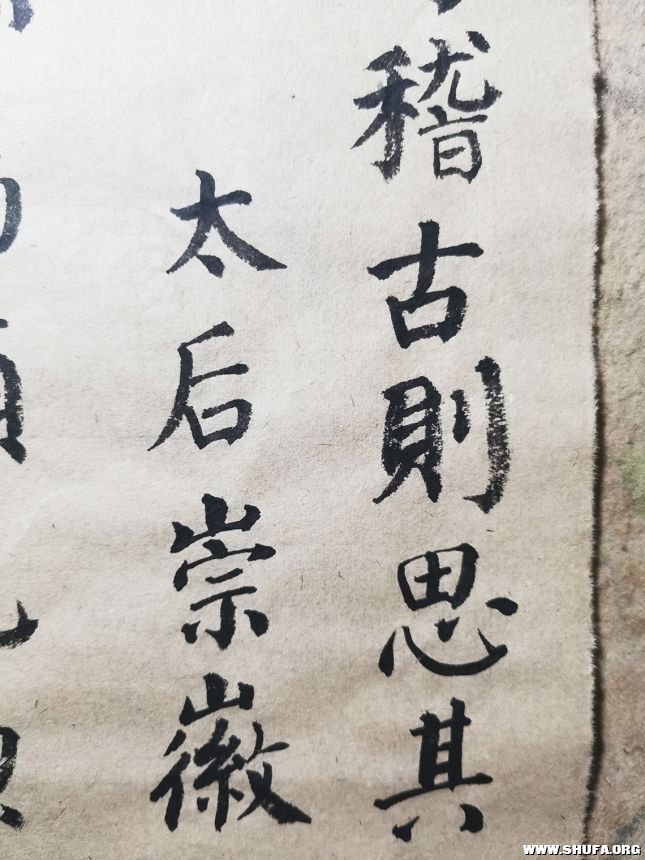 稽古則思其
太后崇徽
WWW.SHUFA.ORG